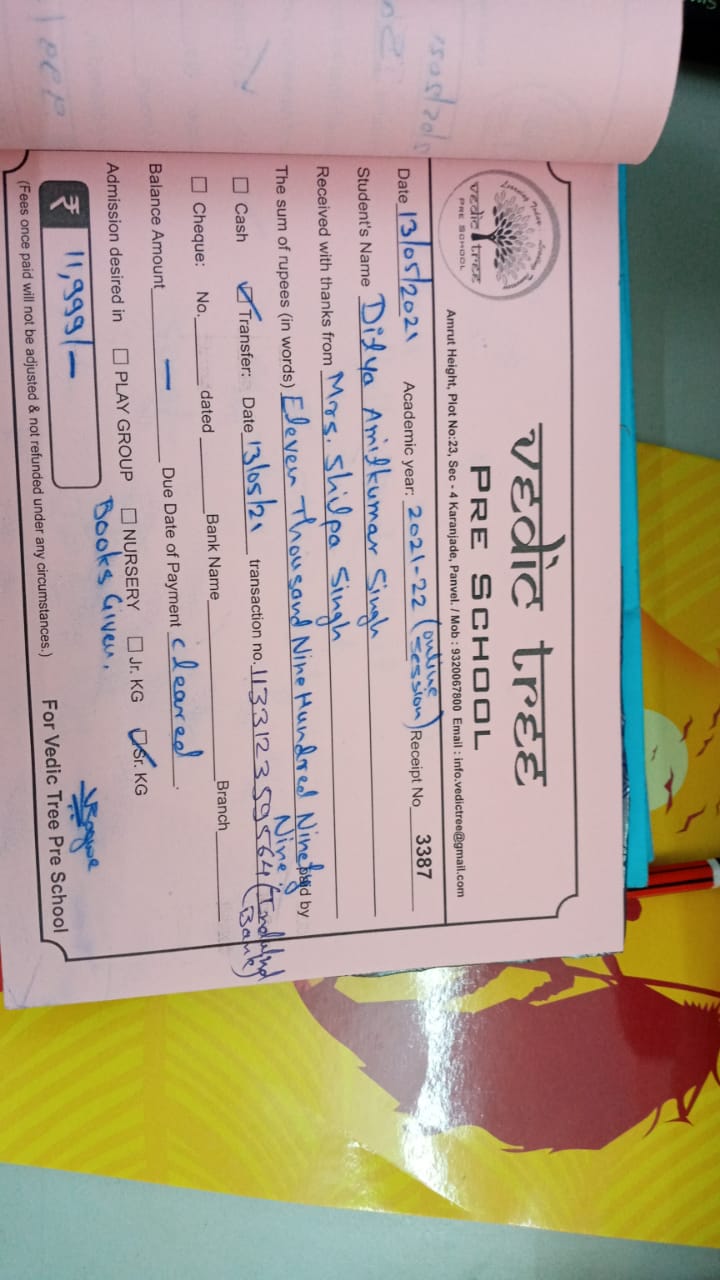 vedic tree
PRE SCHOOL
vedic tree
PRE SCHOOL
Amrut Height, Plot No:23, Sec - 4 Karanjade, Panvel. / Mob : 9320067800 Email : info.vedictree@gmail.com
Date 13/05/2021 Academic year: 2021-22 (online session) Receipt No 3387
Student's Name Didya Amitkumar Singh
Received with thanks from Mrs. Shilpa Singh
The sum of rupees (in words) Eleven Thousand Nine Hundred Ninety Nine paid by
☐ Cash ☑ Transfer: Date 13/05/21 transaction no. 113312359564 (IndusInd Bank)
☐ Cheque: No. dated Bank Name Branch
Balance Amount — Due Date of Payment cleared.
Admission desired in ☐ PLAY GROUP ☐ NURSERY ☐ Jr. KG ☑ Sr. KG
Books Given.
₹ 11,999/-
For Vedic Tree Pre School
(Fees once paid will not be adjusted & not refunded under any circumstances.)